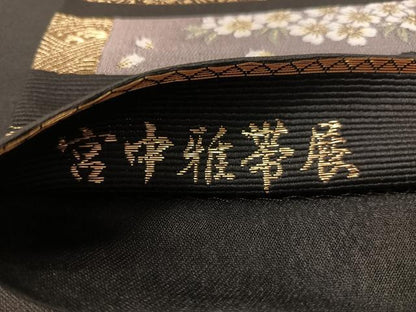 宮中雅帯展